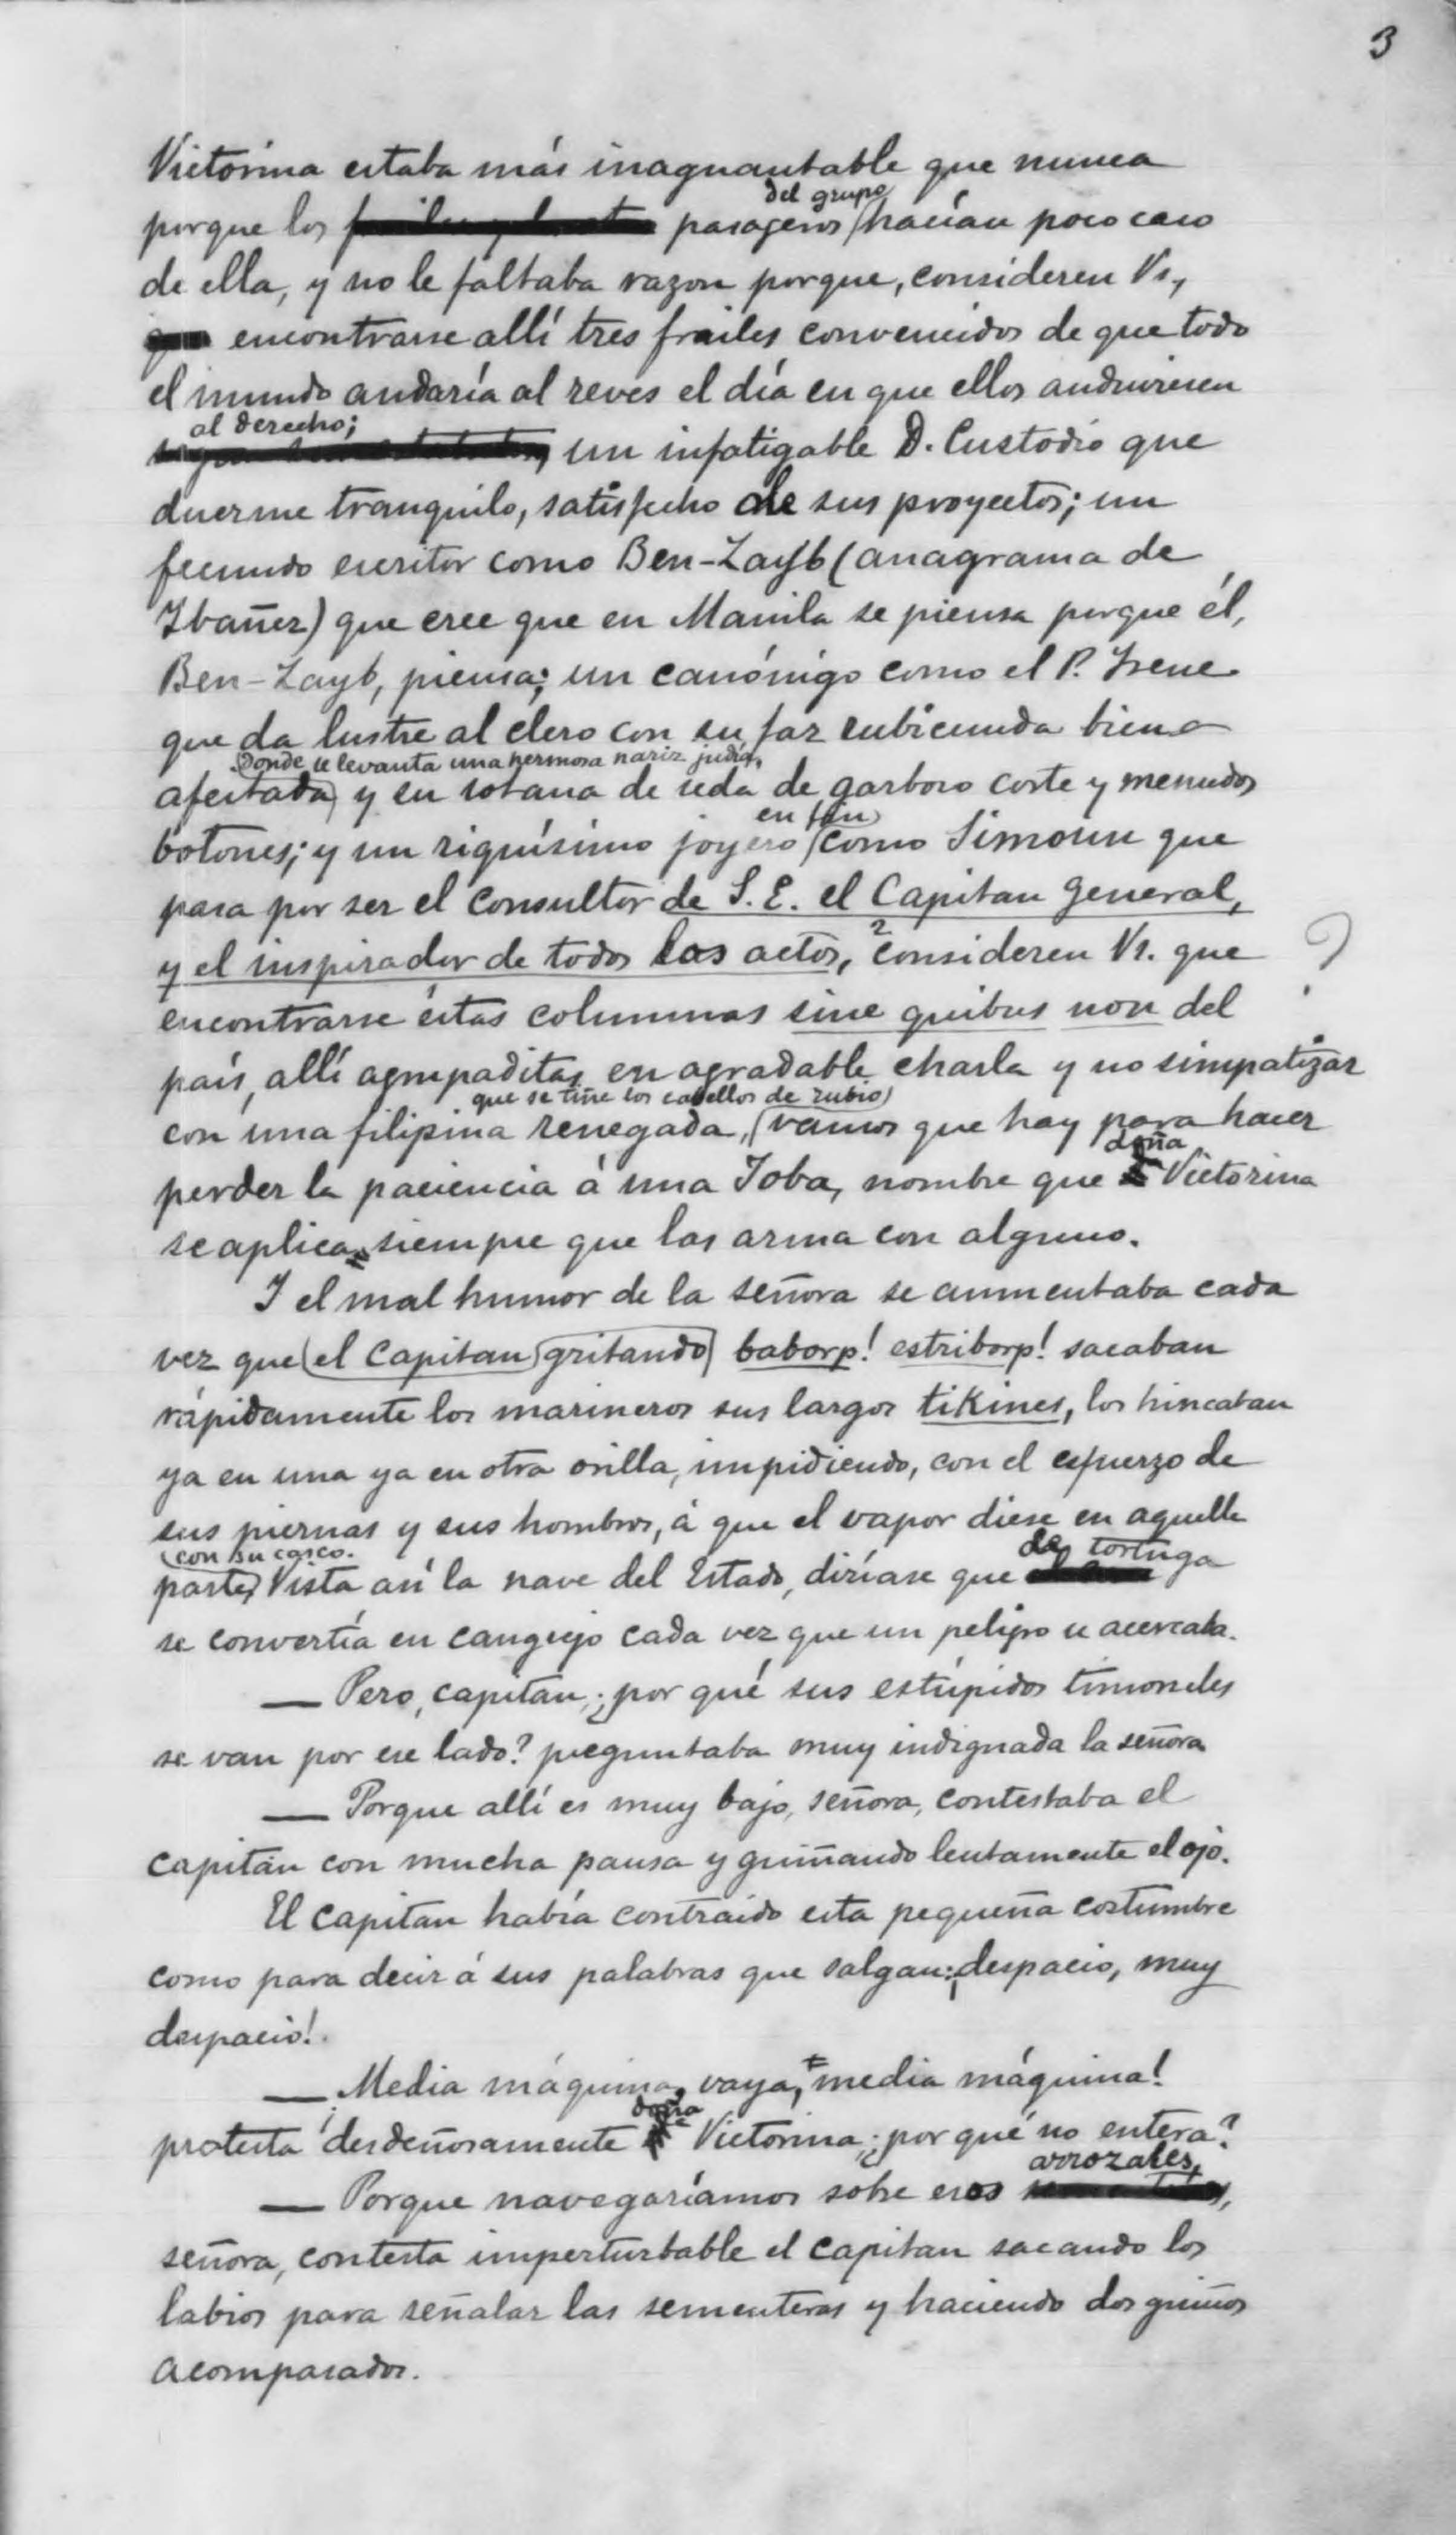 3
Victorina estaba más inaguantable que nunca
del grupo
porque los pasageros hacían poco caso
de ella, y no le faltaba razon porque, consideren Vs,
encontrarse allí tres frailes convencidos de que todo
el mundo andaría al reves el día en que ellos anduviesen
al derecho;
un infatigable D. Custodio que
duerme tranquilo, satisfecho de sus proyectos; un
fecundo escritor como Ben-Zayb (anagrama de
Ibañez) que cree que en Manila se piensa porque él,
Ben-Zayb, piensa; un canónigo como el P. Irene
que da lustre al clero con su faz rubicunda bien
donde se levanta una hermosa nariz judía,
afeitada y su sotana de seda de garboso corte y menudos
en fin
botones; y un riquísimo joyero como Simoun que
pasa por ser el consultor de S. E. el Capitan General,
y el inspirador de todos los actos, consideren Vs. que ?
encontrarse éstas columnas sine quibus non del
país, allí agrupaditas en agradable charla y no simpatizar
que se tiñe los cabellos de rubio
con una filipina renegada, vamos que hay para hacer
doña
perder la paciencia á una Joba, nombre que Victorina
se aplica siempre que las arma con alguno.
Y el mal humor de la señora se aumentaba cada
vez que el Capitan gritando baborp! estriborp! sacaban
rápidamente los marineros sus largos tikines, los hincaban
ya en una ya en otra orilla, impidiendo, con el esfuerzo de
sus piernas y sus hombros, á que el vapor diese en aquella
con su casco.
de tortuga
parte Vista así la nave del Estado, diríase que
se convertía en cangrejo cada vez que un peligro se acercaba.
— Pero, capitan, ¿por qué sus estúpidos timoneles
se van por ese lado? preguntaba muy indignada la señora
— Porque allí es muy bajo, señora, contestaba el
capitán con mucha pausa y guiñando lentamente el ojo.
El capitan había contraido esta pequeña costumbre
como para decir á sus palabras que salgan: ¡despacio, muy
despacio!
— ¡Media máquina, vaya, media máquina!
doña
protesta desdeñosamente Victorina; ¿por qué no entera?
arrozales,
— Porque navegaríamos sobre esos
señora, contesta imperturbable el capitan sacando los
labios para señalar las sementeras y haciendo dos guiños
acompasados.